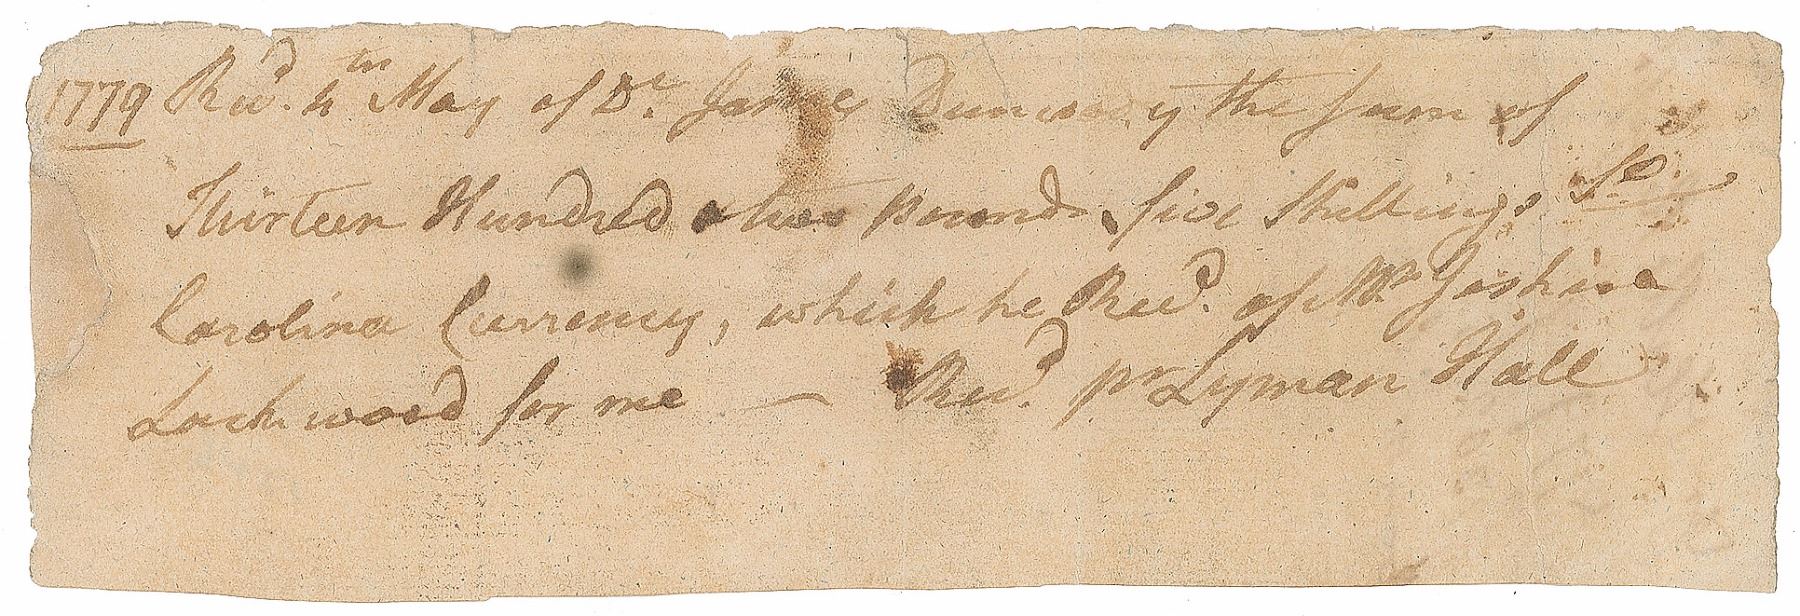 1779 Recd. 4th May of Dr. James Dunwody the sum of
Thirteen Hundred & two pounds, five Shillings So.
Carolina Currency, which he Recd. of Mr Joshua
Lockwood for me — Recd. pr Lyman Hall